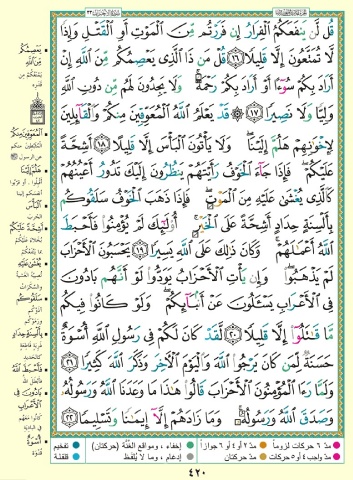 قُل لَّن يَنفَعَكُمُ ٱلۡفِرَارُ إِن فَرَرۡتُم مِّنَ ٱلۡمَوۡتِ أَوِ ٱلۡقَتۡلِ وَإِذٗا
لَّا تُمَتَّعُونَ إِلَّا قَلِيلٗا ١٦ قُلۡ مَن ذَا ٱلَّذِي يَعۡصِمُكُم مِّنَ ٱللَّهِ إِنۡ
أَرَادَ بِكُمۡ سُوٓءًا أَوۡ أَرَادَ بِكُمۡ رَحۡمَةٗۚ وَلَا يَجِدُونَ لَهُم مِّن دُونِ ٱللَّهِ
وَلِيّٗا وَلَا نَصِيرٗا ١٧ ۞ قَدۡ يَعۡلَمُ ٱللَّهُ ٱلۡمُعَوِّقِينَ مِنكُمۡ وَٱلۡقَآئِلِينَ
لِإِخۡوَٰنِهِمۡ هَلُمَّ إِلَيۡنَاۖ وَلَا يَأۡتُونَ ٱلۡبَأۡسَ إِلَّا قَلِيلًا ١٨ أَشِحَّةً
عَلَيۡكُمۡۖ فَإِذَا جَآءَ ٱلۡخَوۡفُ رَأَيۡتَهُمۡ يَنظُرُونَ إِلَيۡكَ تَدُورُ أَعۡيُنُهُمۡ
كَٱلَّذِي يُغۡشَىٰ عَلَيۡهِ مِنَ ٱلۡمَوۡتِۖ فَإِذَا ذَهَبَ ٱلۡخَوۡفُ سَلَقُوكُم
بِأَلۡسِنَةٍ حِدَادٍ أَشِحَّةً عَلَى ٱلۡخَيۡرِۚ أُوْلَٰٓئِكَ لَمۡ يُؤۡمِنُواْ فَأَحۡبَطَ
ٱللَّهُ أَعۡمَٰلَهُمۡۚ وَكَانَ ذَٰلِكَ عَلَى ٱللَّهِ يَسِيرٗا ١٩ يَحۡسَبُونَ ٱلۡأَحۡزَابَ
لَمۡ يَذۡهَبُواْۖ وَإِن يَأۡتِ ٱلۡأَحۡزَابُ يَوَدُّواْ لَوۡ أَنَّهُم بَادُونَ
فِي ٱلۡأَعۡرَابِ يَسۡـَٔلُونَ عَنۡ أَنۢبَآئِكُمۡۖ وَلَوۡ كَانُواْ فِيكُم
مَّا قَٰتَلُوٓاْ إِلَّا قَلِيلٗا ٢٠ لَّقَدۡ كَانَ لَكُمۡ فِي رَسُولِ ٱللَّهِ أُسۡوَةٌ
حَسَنَةٞ لِّمَن كَانَ يَرۡجُواْ ٱللَّهَ وَٱلۡيَوۡمَ ٱلۡأٓخِرَ وَذَكَرَ ٱللَّهَ كَثِيرٗا ٢١
وَلَمَّا رَءَا ٱلۡمُؤۡمِنُونَ ٱلۡأَحۡزَابَ قَالُواْ هَٰذَا مَا وَعَدَنَا ٱللَّهُ وَرَسُولُهُۥ
وَصَدَقَ ٱللَّهُ وَرَسُولُهُۥۚ وَمَا زَادَهُمۡ إِلَّآ إِيمَٰنٗا وَتَسۡلِيمٗا ٢٢
يَعۡصِمُكُم
مِّنَ ٱللَّهِ
ٱلۡمُعَوِّقِينَ مِنكُمۡ
هَلُمَّ إِلَيۡنَا
ٱلۡبَأۡسَ
أَشِحَّةً عَلَيۡكُمۡ
يُغۡشَىٰ عَلَيۡهِ
سَلَقُوكُم
بِأَلۡسِنَةٍ حِدَادٍ
فَأَحۡبَطَ ٱللَّهُ
بَادُونَ فِي
ٱلۡأَعۡرَابِ
أُسۡوَةٌ
قدوة
مدّ ٦ حركات لزوماً
مدّ ٢ أو ٤ أو ٦ جوازاً
إخفاء، ومواقع الغنّة (حركتان)
تفخيم
مدّ واجب ٤ أو ٥ حركات
مدّ حركتان
إدغام، وما لا يُلفظ
قلقلة
٤٢٠